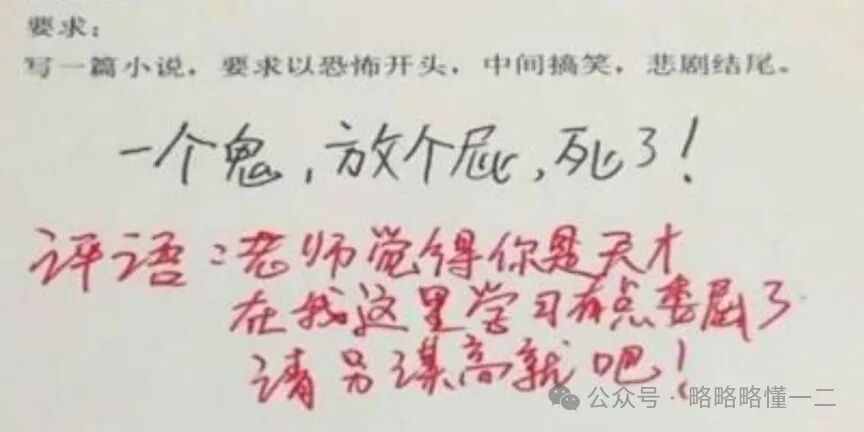 要求：
写一篇小说，要求以恐怖开头，中间搞笑，悲剧结尾。
一个鬼，放个屁，死了！
评语：老师觉得你是天才
在我这里学习有点委屈了
请另谋高就吧！
公众号·略略略懂一二